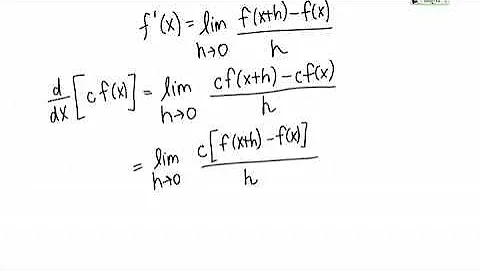 f'(x) = lim h→0 f(x+h)-f(x) / h
d/dx [c f(x)] = lim h→0 cf(x+h)-cf(x) / h
= lim h→0 c[f(x+h)-f(x)] / h